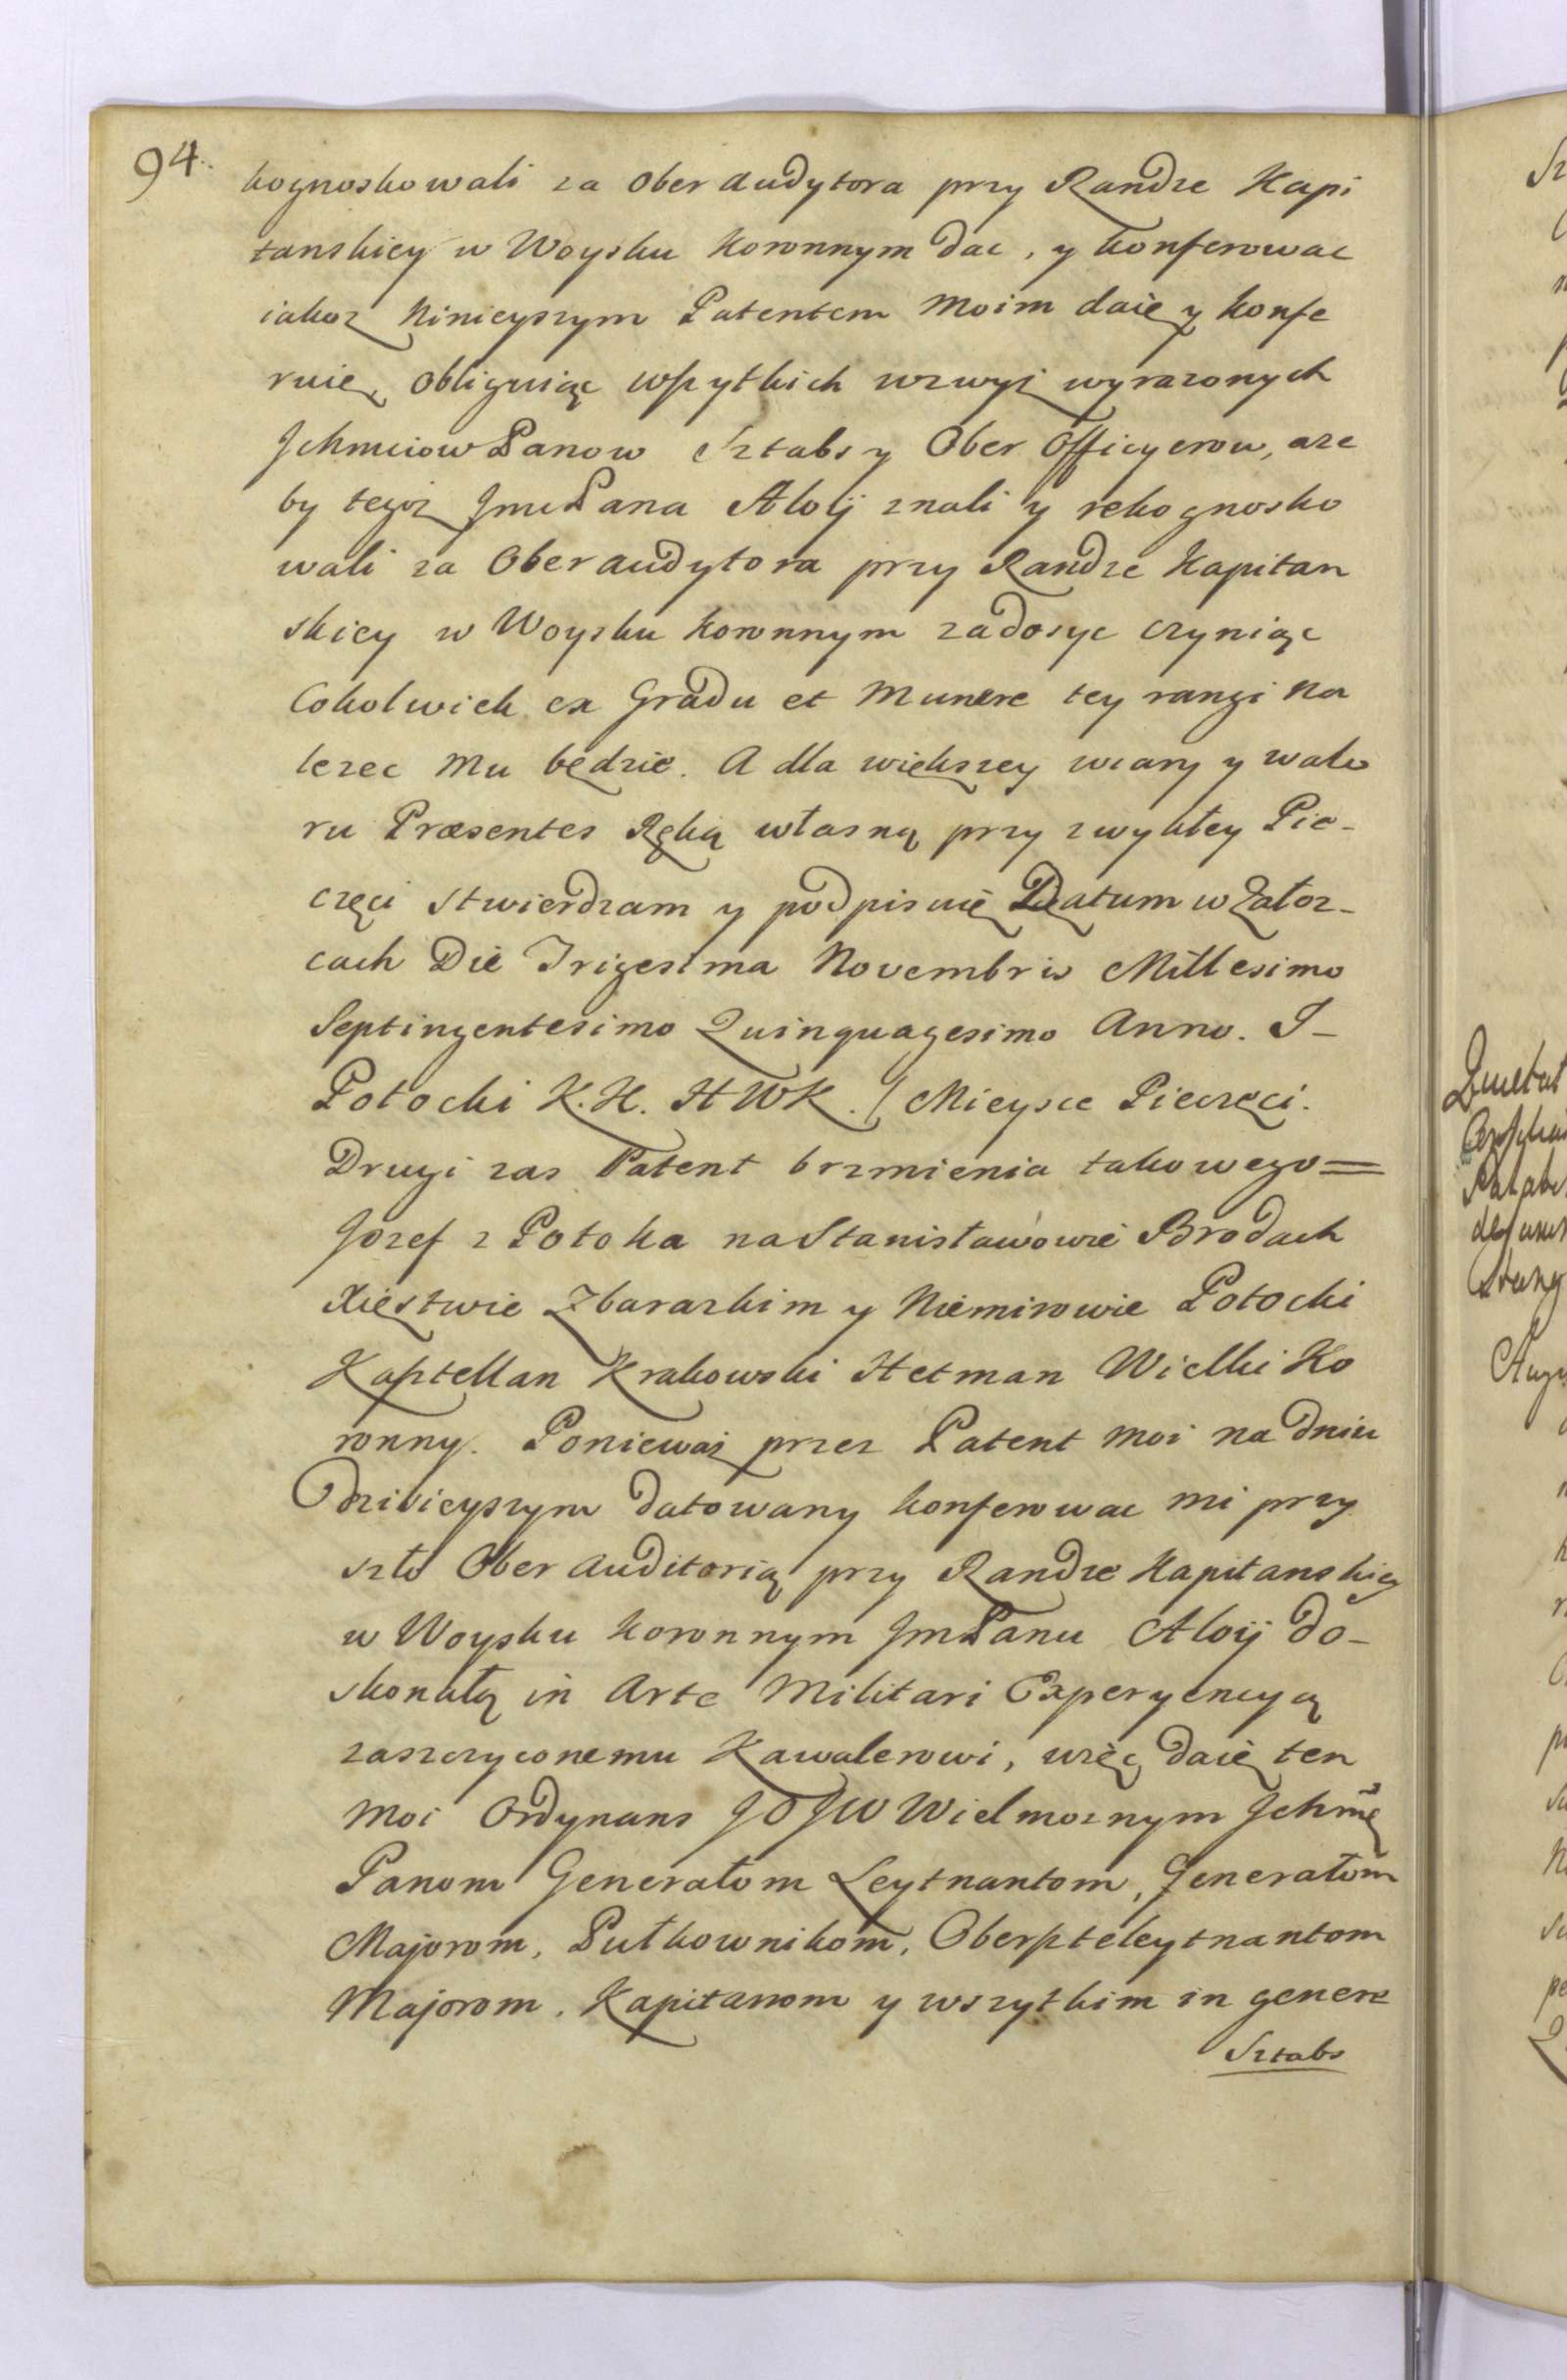 94.
kognoskowali za Ober audytora przy Randze Kapi
tanskiey w Woysku Koronnym dac, y konferowac
iakoz Ninieyszym Patentem Moim daię y konfe
ruię, obliguiąc wszytkich wzwyż wyrazonych
Jchmciow Panow Sztabs y Ober Officyerow, aze
by tegoz Jmć Pana Aloij znali y rekognosko
wali za Oberaudytora przy Randze Kapitan
skiey w Woysku Koronnym zadosyc czyniąc
Cokolwiek ex Gradu et Munere tey rangi Na
lezec Mu będzie. A dla większey wiary y walo
ru Præsentes Ręką własną przy zwykłey Pie-
częci stwierdzam y podpisuię Datum w Załoz-
cach Die Trigesima Novembris Millesimo
Septingentesimo Quinquagesimo Anno. J-
Potocki K. K. H W K. / Mieysce Pieczęci.
Drugi zas Patent brzmienia takowego =
Jozef z Potoka na Stanisławowie Brodach
Xięstwie Zbarazkim y Niemirowie Potocki
Kasztellan Krakowski Hetman Wielki Ko
ronny. Poniewaz przez Patent moi na dniu
Dzisieyszym datowany konferowac mi przy
szło Ober Auditorią przy Randze Kapitanskiey
w Woysku Koronnym Jm Panu Aloij do-
skonałą in Arte Militari Experyencyą
zaszczyconemu Kawalerowi, więc daię ten
Moi Ordynans J O J W Wielmoznym Jchmć
Panom Generałom Leytnantom, Generałom
Majorom, Pułkownikom, Oberszteleytnantom
Majorom, Kapitanom y wszytkim in genere
Sztabs